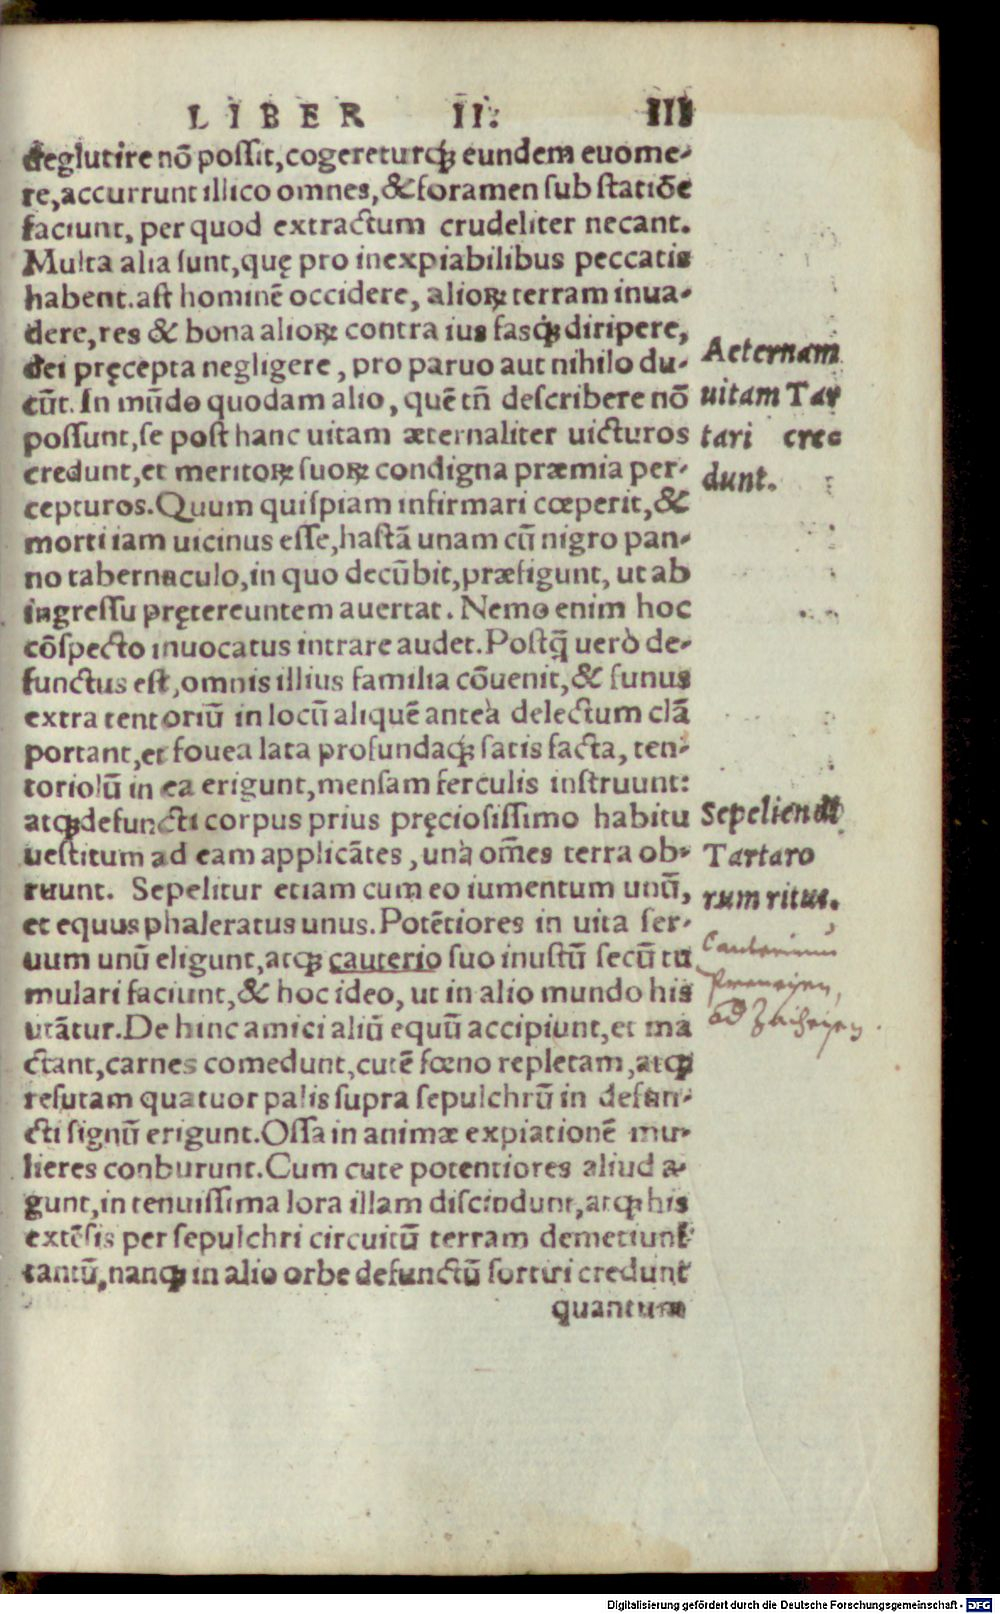 LIBER II. III
deglutire nō possit, cogereturq́; eundem euome-
re, accurrunt illico omnes, & foramen sub statiōe
faciunt, per quod extractum crudeliter necant.
Multa alia sunt, quę pro inexpiabilibus peccatis
habent. ast hominē occidere, alioꝝ terram inua-
dere, res & bona alioꝝ contra ius fasq́; diripere,
dei pręcepta negligere, pro paruo aut nihilo du-
cūt. In mūdo quodam alio, quē tñ describere nō
possunt, se post hanc uitam æternaliter uicturos
credunt, et meritoꝝ suoꝝ condigna præmia per-
cepturos. Quum quispiam infirmari cœperit, &
morti iam uicinus esse, hastā unam cū nigro pan-
no tabernaculo, in quo decūbit, præfigunt, ut ab
ingressu prętereuntem auertat. Nemo enim hoc
cōspecto inuocatus intrare audet. Postq̄ uerò de-
functus est, omnis illius familia cōuenit, & funus
extra tentoriū in locū aliquē anteà delectum clā
portant, et fouea lata profundaq́; satis facta, ten-
toriolū in ea erigunt, mensam ferculis instruunt:
atq́; defuncti corpus prius pręciosissimo habitu
uestitum ad eam applicātes, unà om̄es terra ob-
ruunt. Sepelitur etiam cum eo iumentum unū,
et equus phaleratus unus. Potētiores in uita ser-
uum unū eligunt, atq́; cauterio suo inustū secū tu
mulari faciunt, & hoc ideo, ut in alio mundo his
utātur. De hinc amici aliū equū accipiunt, et ma
ctant, carnes comedunt, cutē fœno repletam, atq́;
resutam quatuor palis supra sepulchrū in defun-
cti signū erigunt. Ossa in animæ expiationē mu-
lieres conburunt. Cum cute potentiores aliud a-
gunt, in tenuissima lora illam discindunt, atq́; his
extēsis per sepulchri circuitū terram demetiunt
tantū, nanq́; in alio orbe defunctū sortiri credunt
quantum
Aeternam
uitam Tar
tari cre-
dunt.
Sepeliendi
Tartaro
rum ritus.
Digitalisierung gefördert durch die Deutsche Forschungsgemeinschaft - DFG